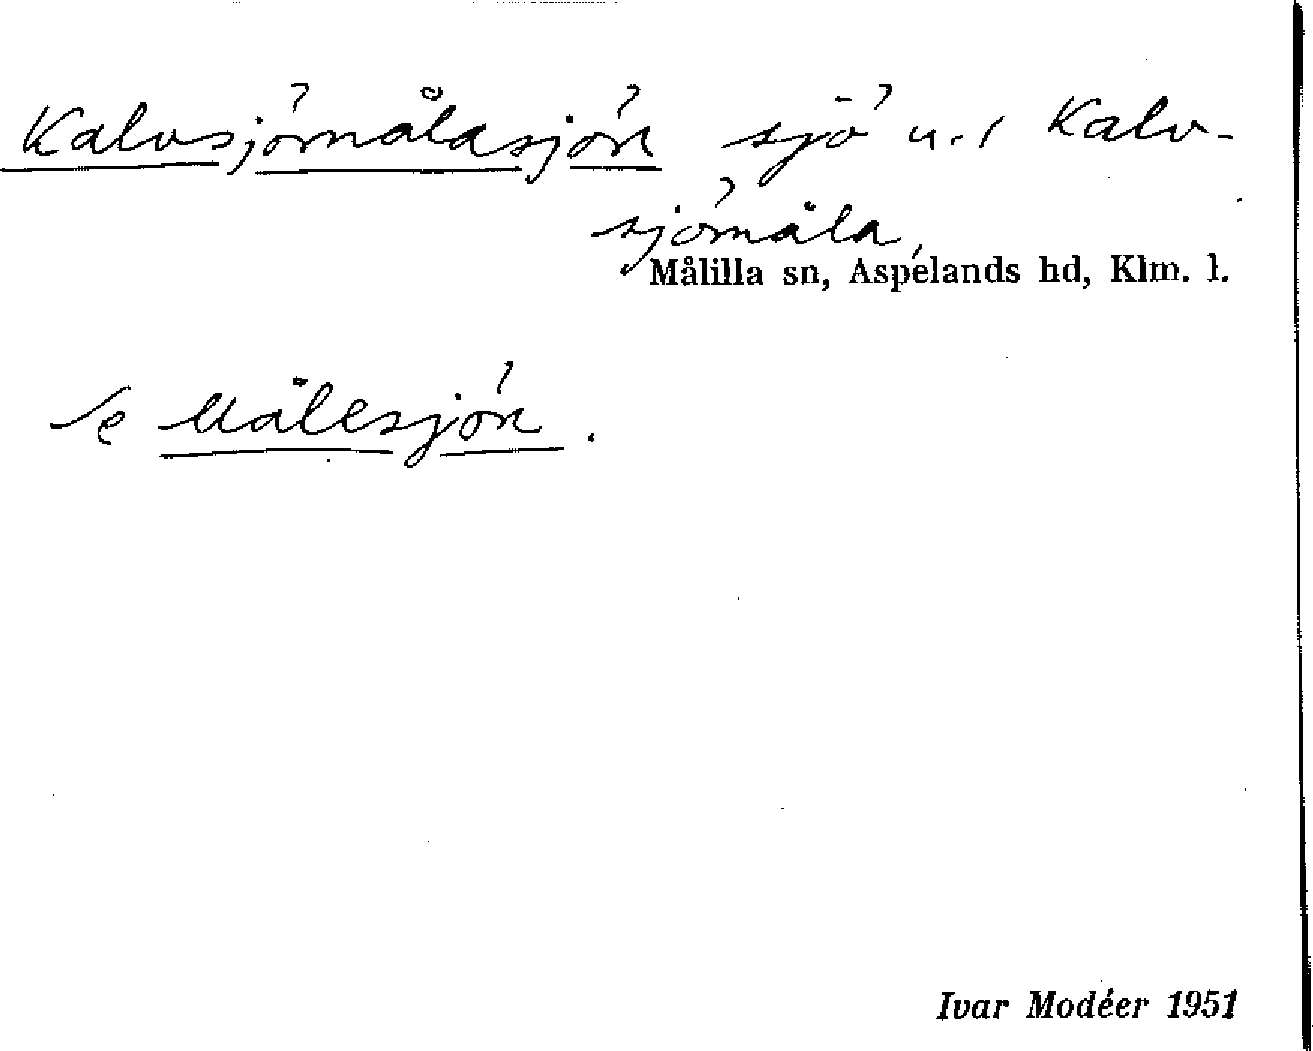 Kalvsjömålasjön sjö u. Kalv-
sjömåla,
Målilla sn, Aspelands hd, Klm. l.
Se Målesjön.
Ivar Modéer 1951